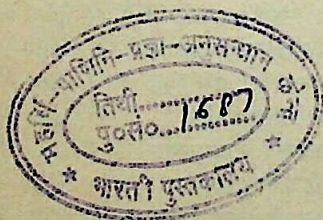 महर्षि-पाणिनि-प्रज्ञा-अनुसन्धान केन्द्र
तिथी..............
पु०सं०....1687
* भारती पुस्तकालय *